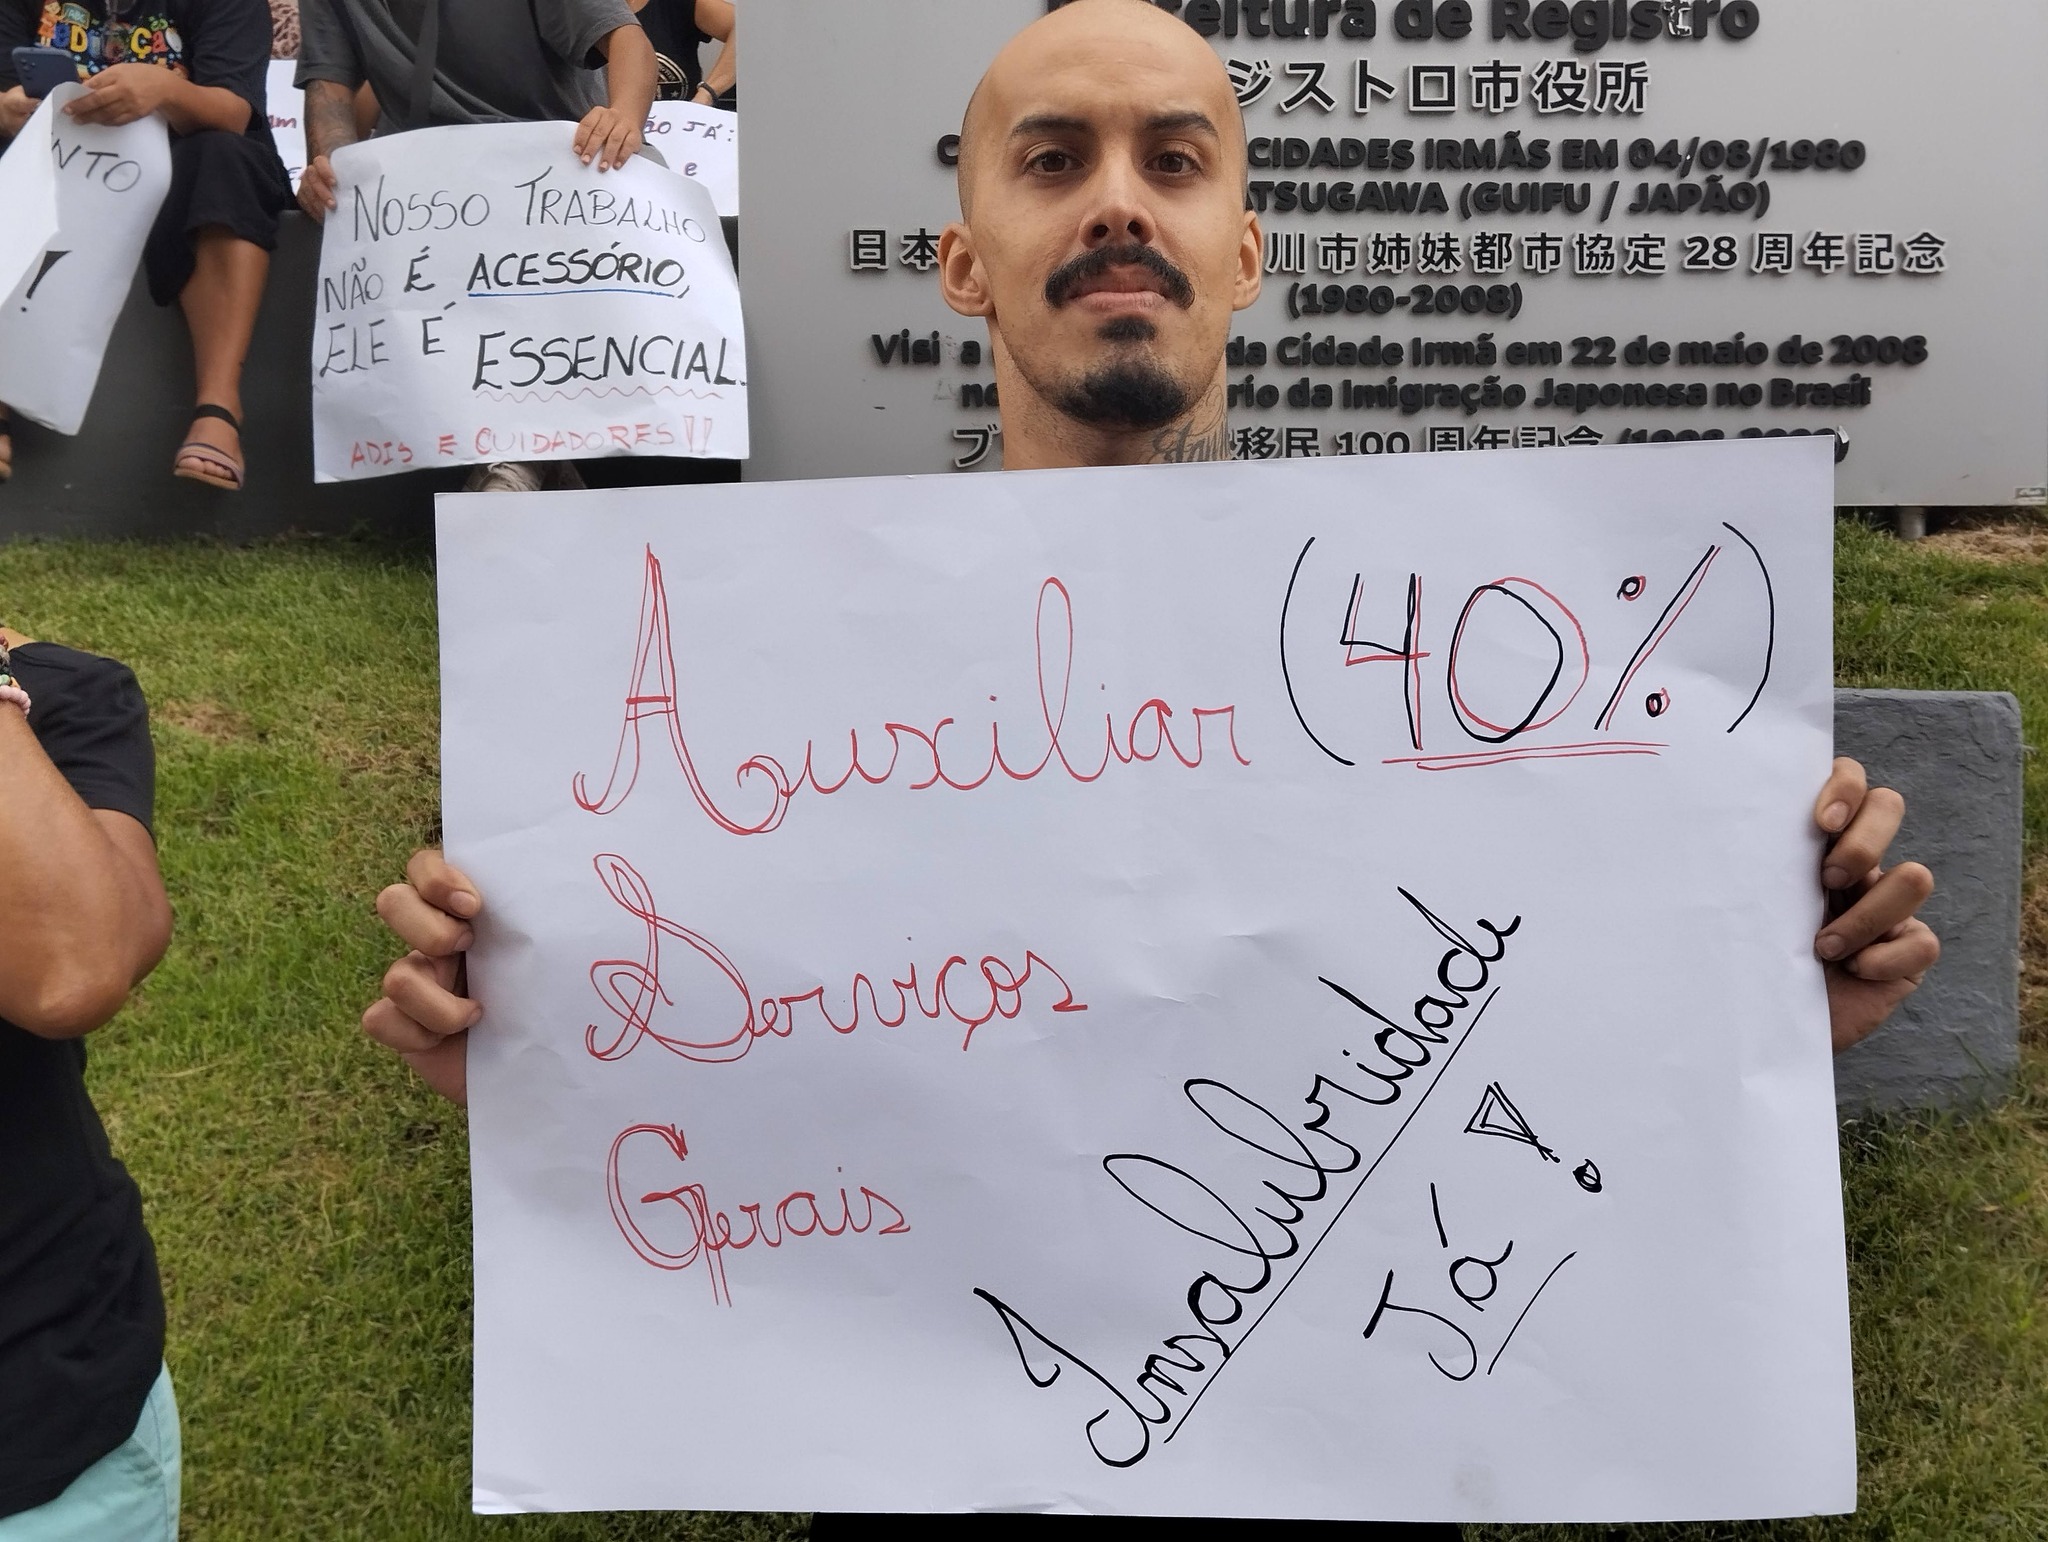 educação
NTO
!
am
ão JÁ!
e
NOSSO TRABALHO
NÃO É ACESSÓRIO,
ELE É ESSENCIAL.
ADIS E CUIDADORES!!
feitura de Registro
ジストロ市役所
CIDADES IRMÃS EM 04/08/1980
ATSUGAWA (GUIFU / JAPÃO)
日本 川市姉妹都市協定 28 周年記念
(1980-2008)
Visi a da Cidade Irmã em 22 de maio de 2008
no rio da Imigração Japonesa no Brasil
ブ 移民 100 周年記念
Auxiliar (40%)
Serviços
Gerais
Insalubridade
Já!